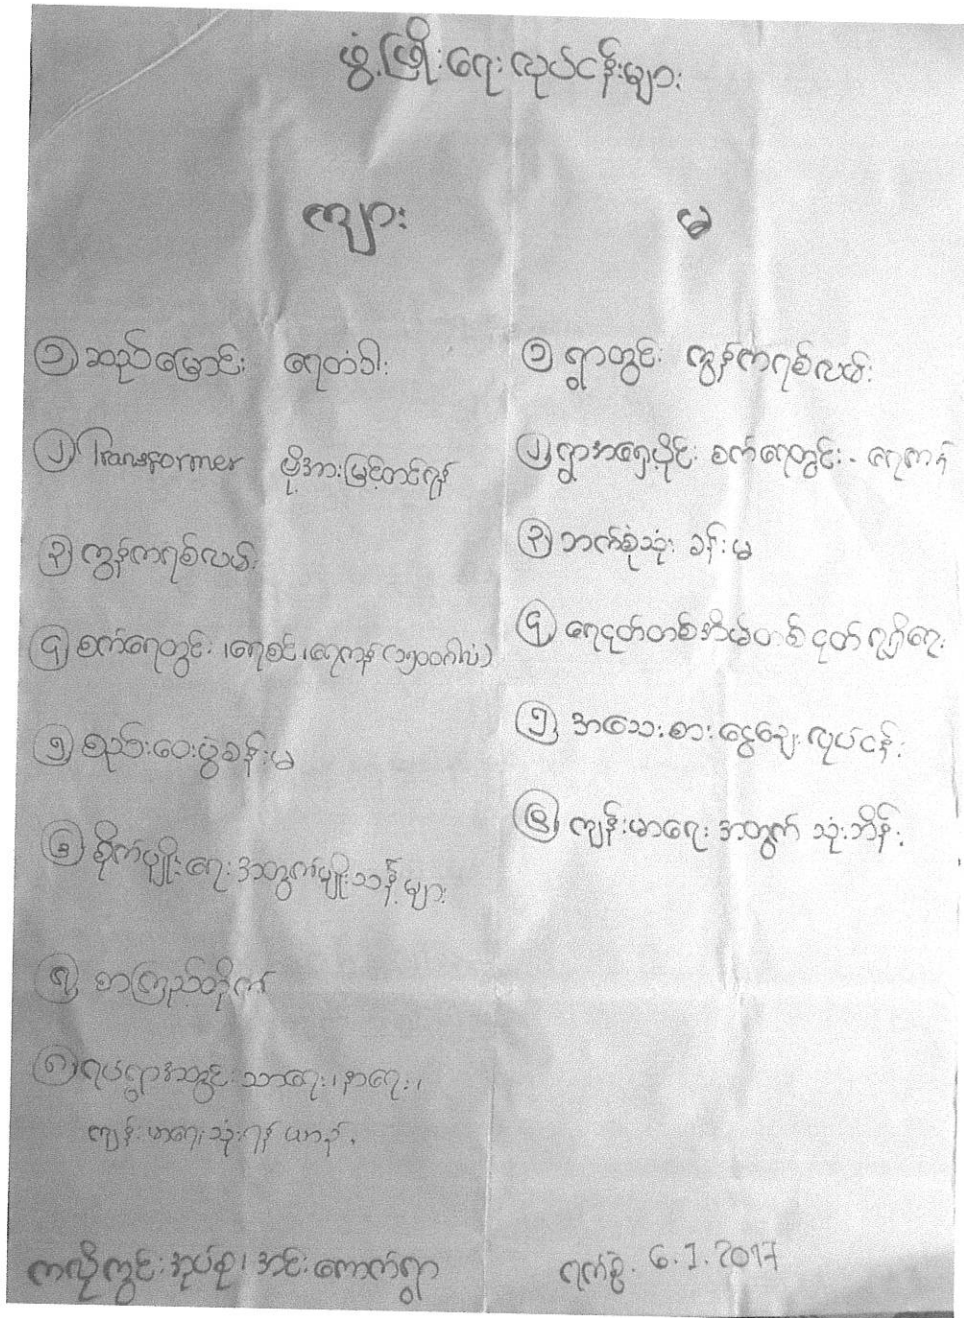 ဖွံ့ဖြိုးရေးလုပ်ငန်းများ
ကျား
မ
① ဆည်မြောင်း ရေတံခါး
② Transformer မို့အားမြှင့်တင်ရန်
③ ကွန်ကရစ်လမ်း
④ စက်ရေတွင်း၊ ရေစင်၊ ရေကန် (၁၅၀၀ဂါလံ)
⑤ စည်းဝေးပွဲခန်းမ
⑥ စိုက်ပျိုးရေးအတွက်မျိုးသန့်များ
⑦ စာကြည့်တိုက်
⑧ ရပ်ရွာအတွင်း သာရေး၊ နာရေး၊
ကျန်းမာရေးသုံးရန် ယာဉ်.
① ရွာတွင်း ကွန်ကရစ်လမ်း
② ရွာအရှေ့ပိုင်း စက်ရေတွင်း - ရေကန်
③ ဘက်စုံသုံး ခန်းမ
④ ရေငုတ်တစ်အိမ်တစ်ငုတ် ရရှိရေး
⑤ အသေးစားငွေချေးလုပ်ငန်း
⑥ ကျန်းမာရေး အတွက် သုံးဘိန်း
ကလိုကွင်းအုပ်စု၊ အင်းကောက်ရွာ
ရက်စွဲ. 6.1.2017